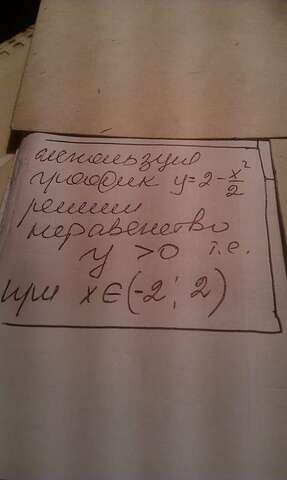 используя
график y=2-x²/2
решим
неравенство
y >0 т.е.
при x∈(-2; 2)